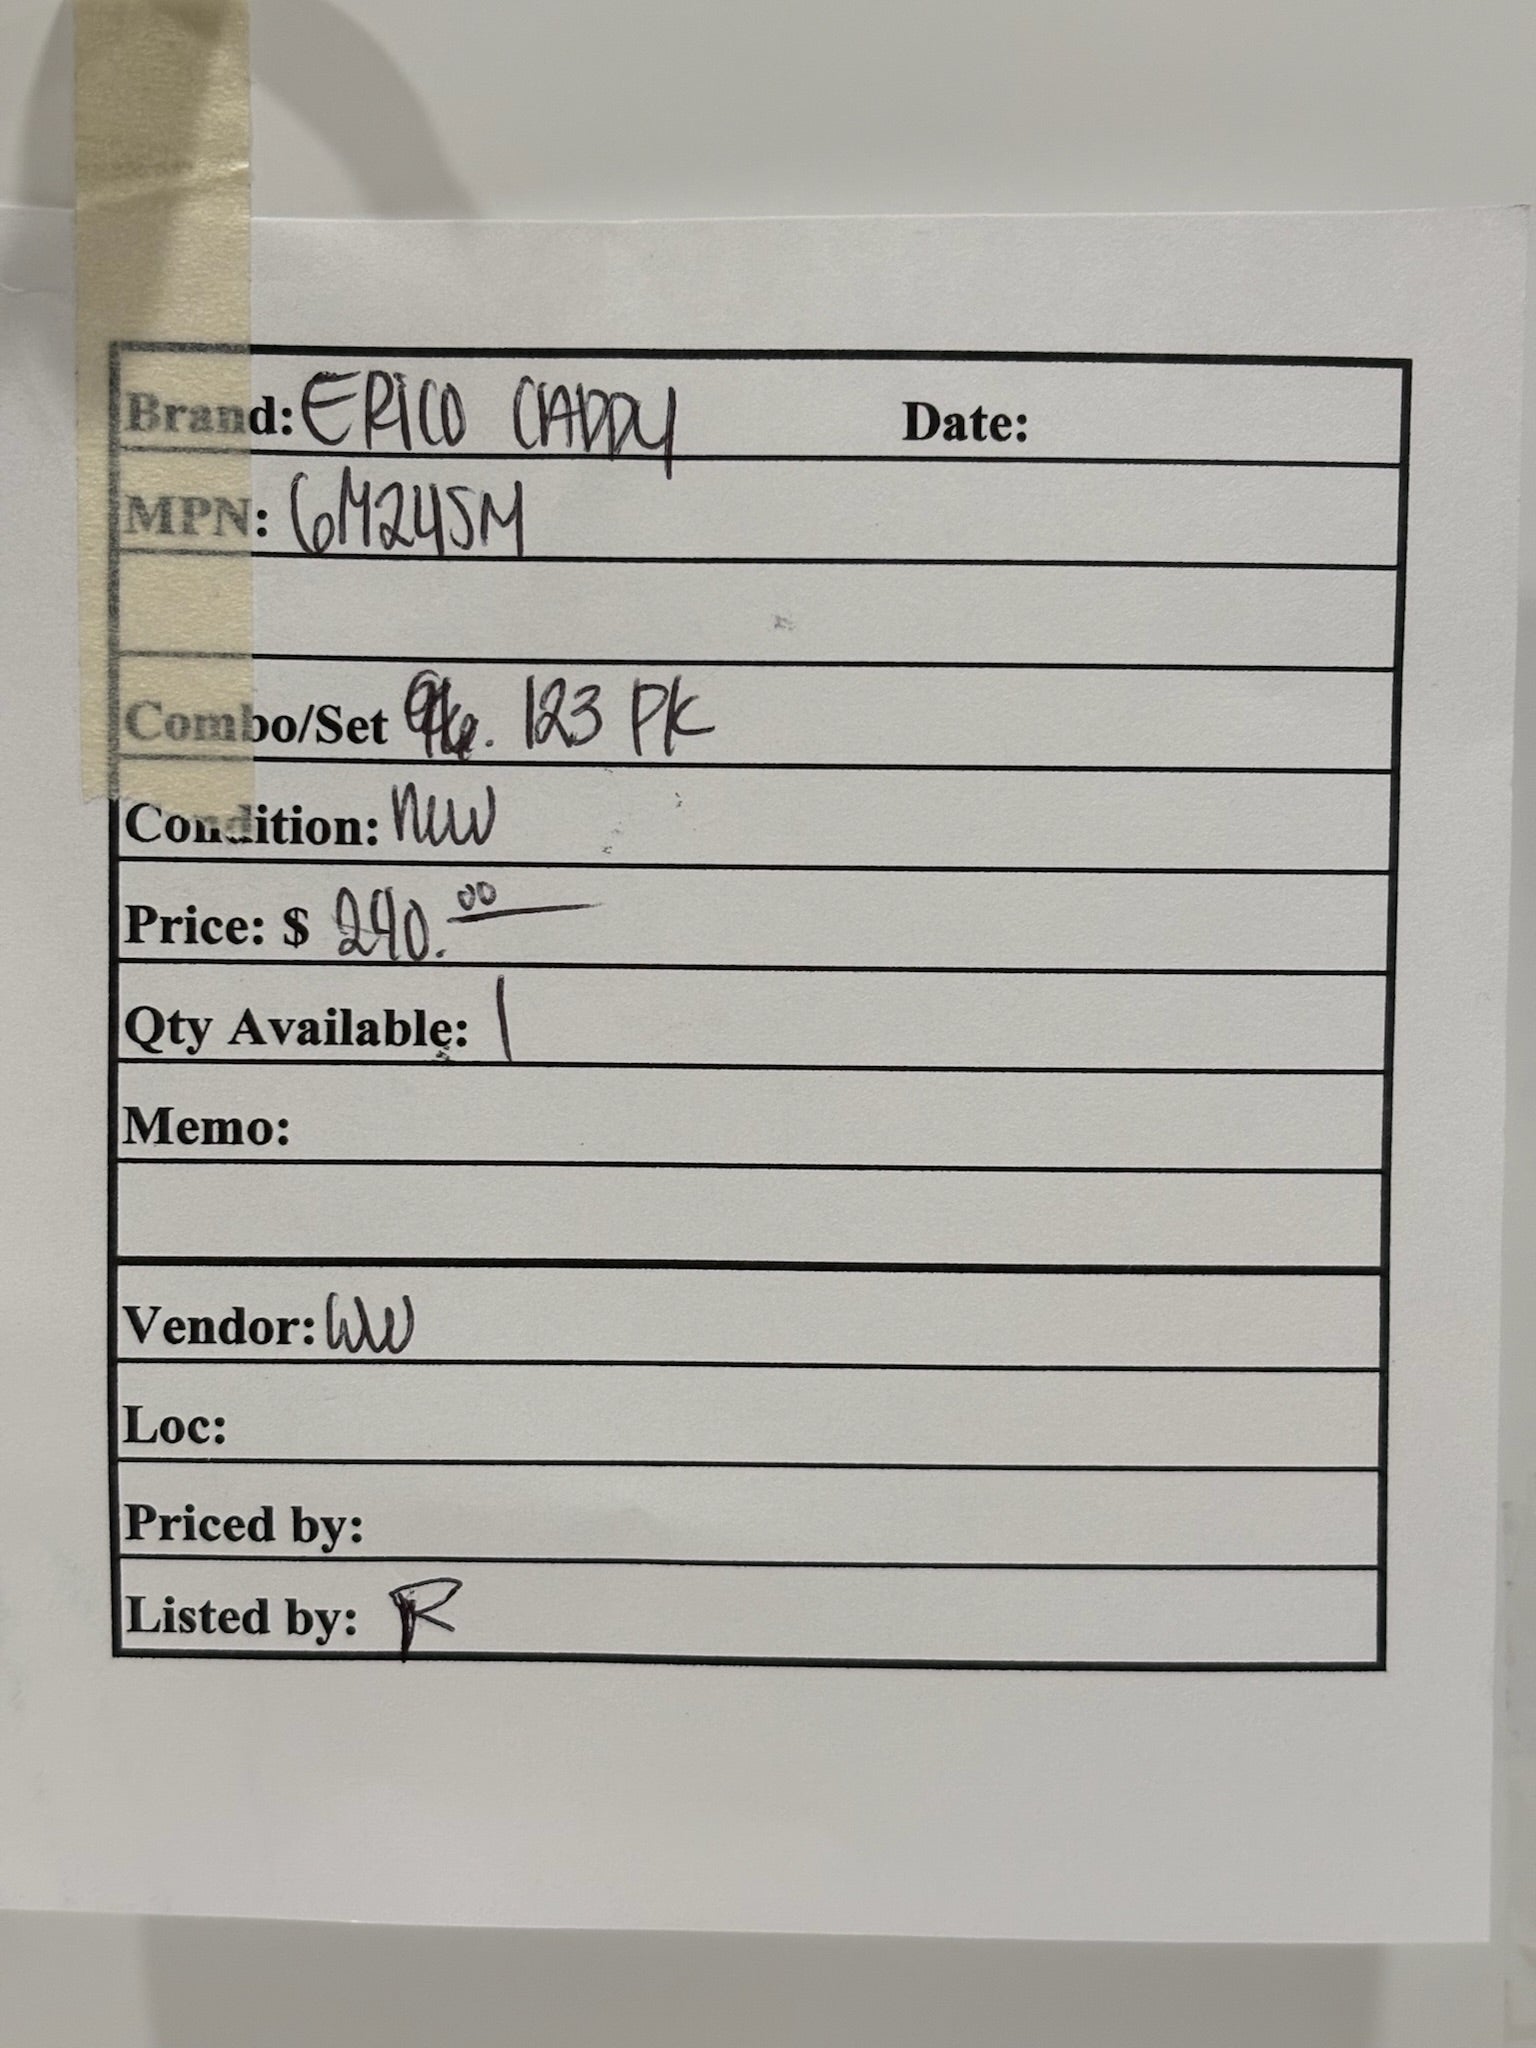 Brand: ERICO CADDY Date:
MPN: 6M245M
Combo/Set 123 PK
Condition: new
Price: $ 240.00
Qty Available: 1
Memo:
Vendor: WW
Loc:
Priced by:
Listed by: R